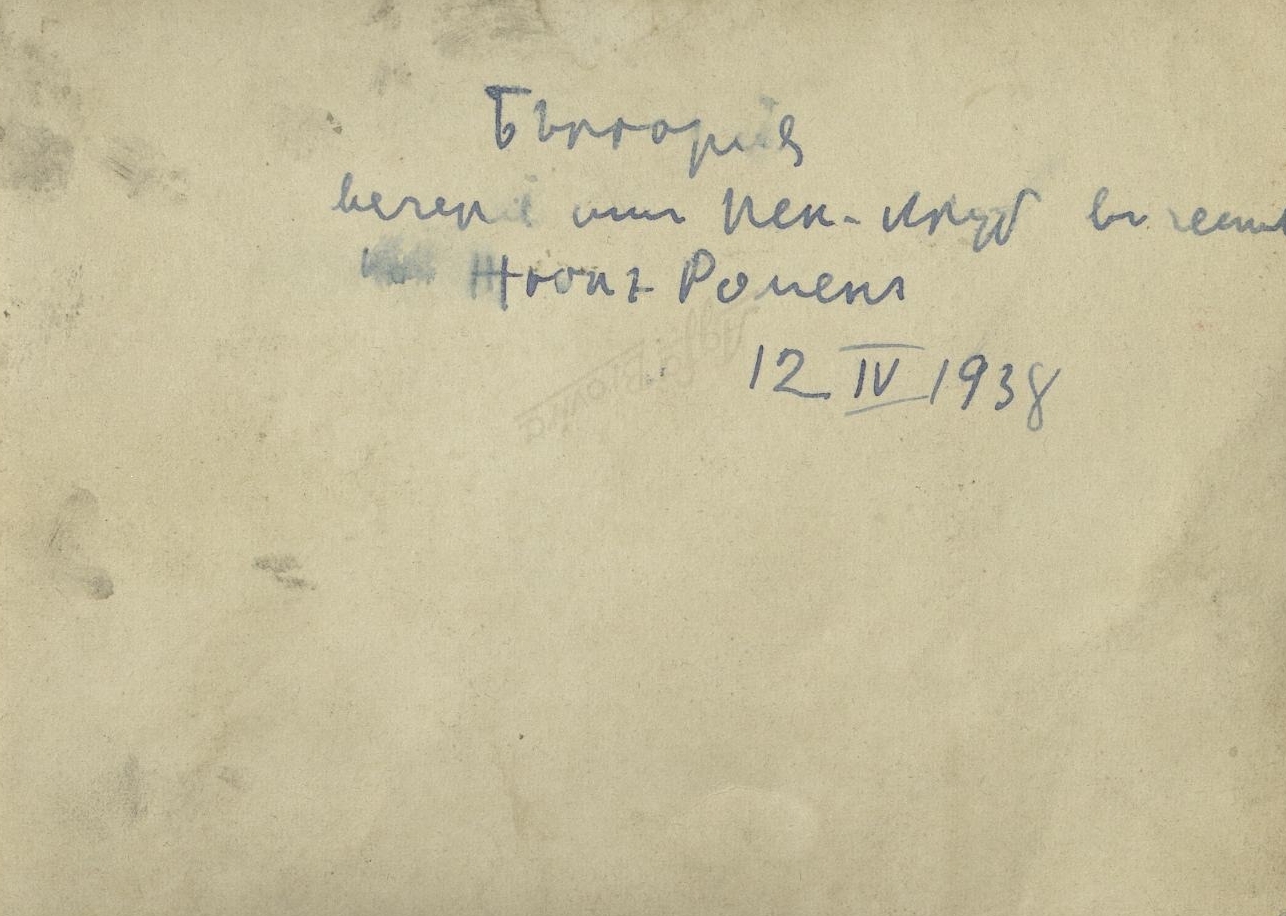 България
вечеря отъ Пен-клуб въ чест
на Жюлъ Роменъ
12 IV 1938